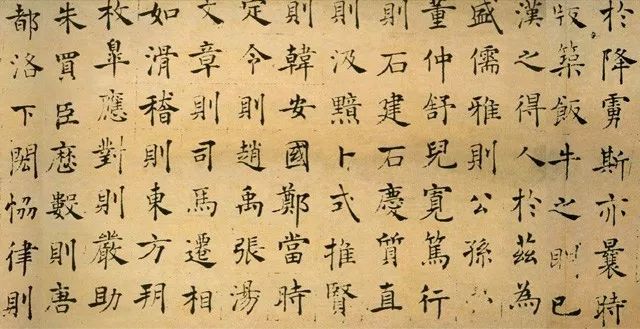 於降虜斯亦曩時
版築飯牛之朙已
漢之得人於茲為
盛儒雅則公孫
董仲舒兒寬篤行
則石建石慶質直
則汲黯卜式推賢
則韓安國鄭當時
定令則趙禹張湯
文章則司馬遷相
如滑稽則東方朔
枚皋應對則嚴助
朱買臣曆數則唐
都洛下閎恊律則